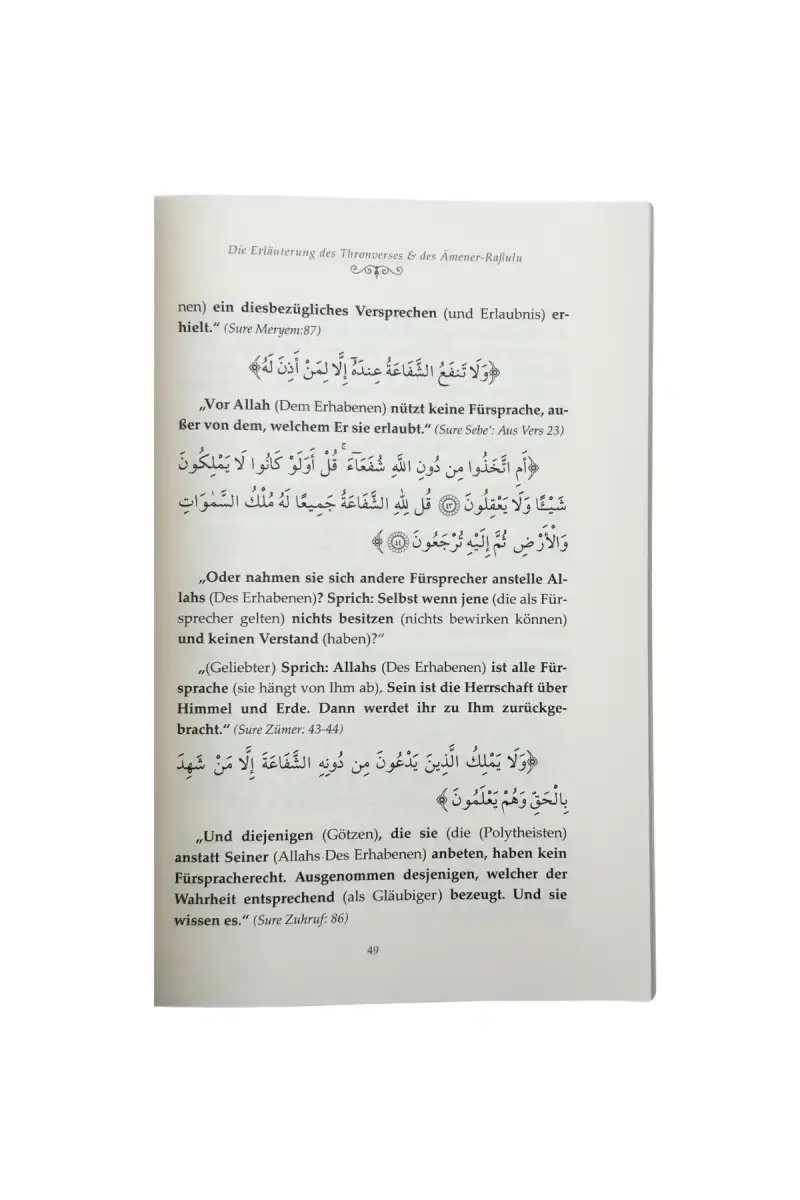 Die Erläuterung des Thronverses & des Âmener-Raßulu
nen) ein diesbezügliches Versprechen (und Erlaubnis) er-
hielt.“ (Sure Meryem:87)
﴿وَلَا تَنفَعُ الشَّفَاعَةُ عِندَهُٓ إِلَّا لِمَنْ أَذِنَ لَهُ﴾
„Vor Allah (Dem Erhabenen) nützt keine Fürsprache, au-
ßer von dem, welchem Er sie erlaubt.“ (Sure Sebe’: Aus Vers 23)
﴿أَمِ اتَّخَذُوا مِن دُونِ اللَّهِ شُفَعَآءَ ۚ قُلْ أَوَلَوْ كَانُوا لَا يَمْلِكُونَ
شَيْـًٔا وَلَا يَعْقِلُونَ ۝٤٣ قُل لِلَّهِ الشَّفَاعَةُ جَمِيعًا لَهُ مُلْكُ السَّمٰوَاتِ
وَالْأَرْضِ ثُمَّ إِلَيْهِ تُرْجَعُونَ ۝٤٤﴾
„Oder nahmen sie sich andere Fürsprecher anstelle Al-
lahs (Des Erhabenen)? Sprich: Selbst wenn jene (die als Für-
sprecher gelten) nichts besitzen (nichts bewirken können)
und keinen Verstand (haben)?“
„(Geliebter) Sprich: Allahs (Des Erhabenen) ist alle Für-
sprache (sie hängt von Ihm ab), Sein ist die Herrschaft über
Himmel und Erde. Dann werdet ihr zu Ihm zurückge-
bracht.“ (Sure Zümer: 43-44)
﴿وَلَا يَمْلِكُ الَّذِينَ يَدْعُونَ مِن دُونِهِ الشَّفَاعَةَ إِلَّا مَنْ شَهِدَ
بِالْحَقِّ وَهُمْ يَعْلَمُونَ﴾
„Und diejenigen (Götzen), die sie (die (Polytheisten)
anstatt Seiner (Allahs Des Erhabenen) anbeten, haben kein
Fürspracherecht. Ausgenommen desjenigen, welcher der
Wahrheit entsprechend (als Gläubiger) bezeugt. Und sie
wissen es.“ (Sure Zuhruf: 86)
49